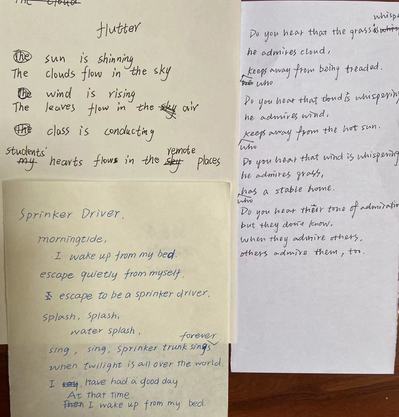 the cloud
flutter
the sun is shinning
The clouds flow in the sky
the wind is rising
The leaves flow in the sky air
the class is conducting
students' remote
my hearts flows in the sky places
Sprinker Driver.
morningtide,
I wake up from my bed.
escape quietly from myself.
I escape to be a sprinker driver.
splash, splash,
water splash,
forever
sing, sing, sprinker trunk sings
when twilight is all over the world
I have had a good day
At that time
Then I wake up from my bed.
whispe
Do you hear that the grass is
he admires cloud,
keeps away from being treaded.
who
Do you hear that cloud is whispering
he admires wind,
keeps away from the hot sun.
who
Do you hear that wind is whispering
he admires grass,
has a stable home.
who
Do you hear their tone of admiration
but they don't know.
When they admire others,
others admire them, too.